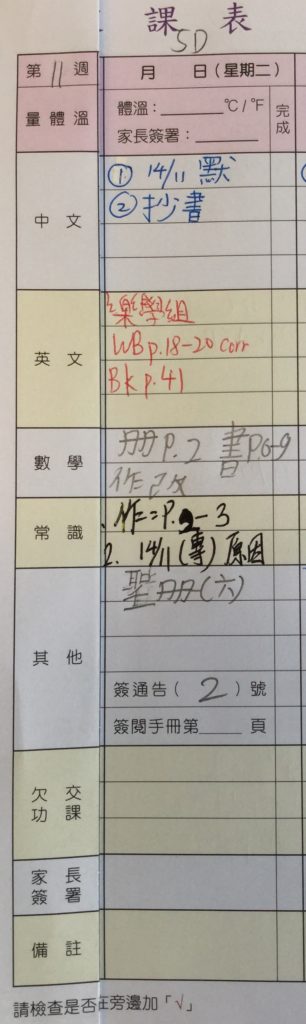 課表
5D
第11週 月 日(星期二)
量體溫 體溫：______°C/°F 完成
家長簽署：______
中文 ① 14/11 默
② 抄書
英文 樂學組
WB p.18-20 corr
Bk p.41
數學 冊P.2 書P.6-9
作改
常識 1. 作=P.2-3
2. 14/11(專)原因
其他 聖冊(六)
簽通告( 2 )號
簽閱手冊第____頁
欠交功課
家長簽署
備註
請檢查是否在旁邊加「√」